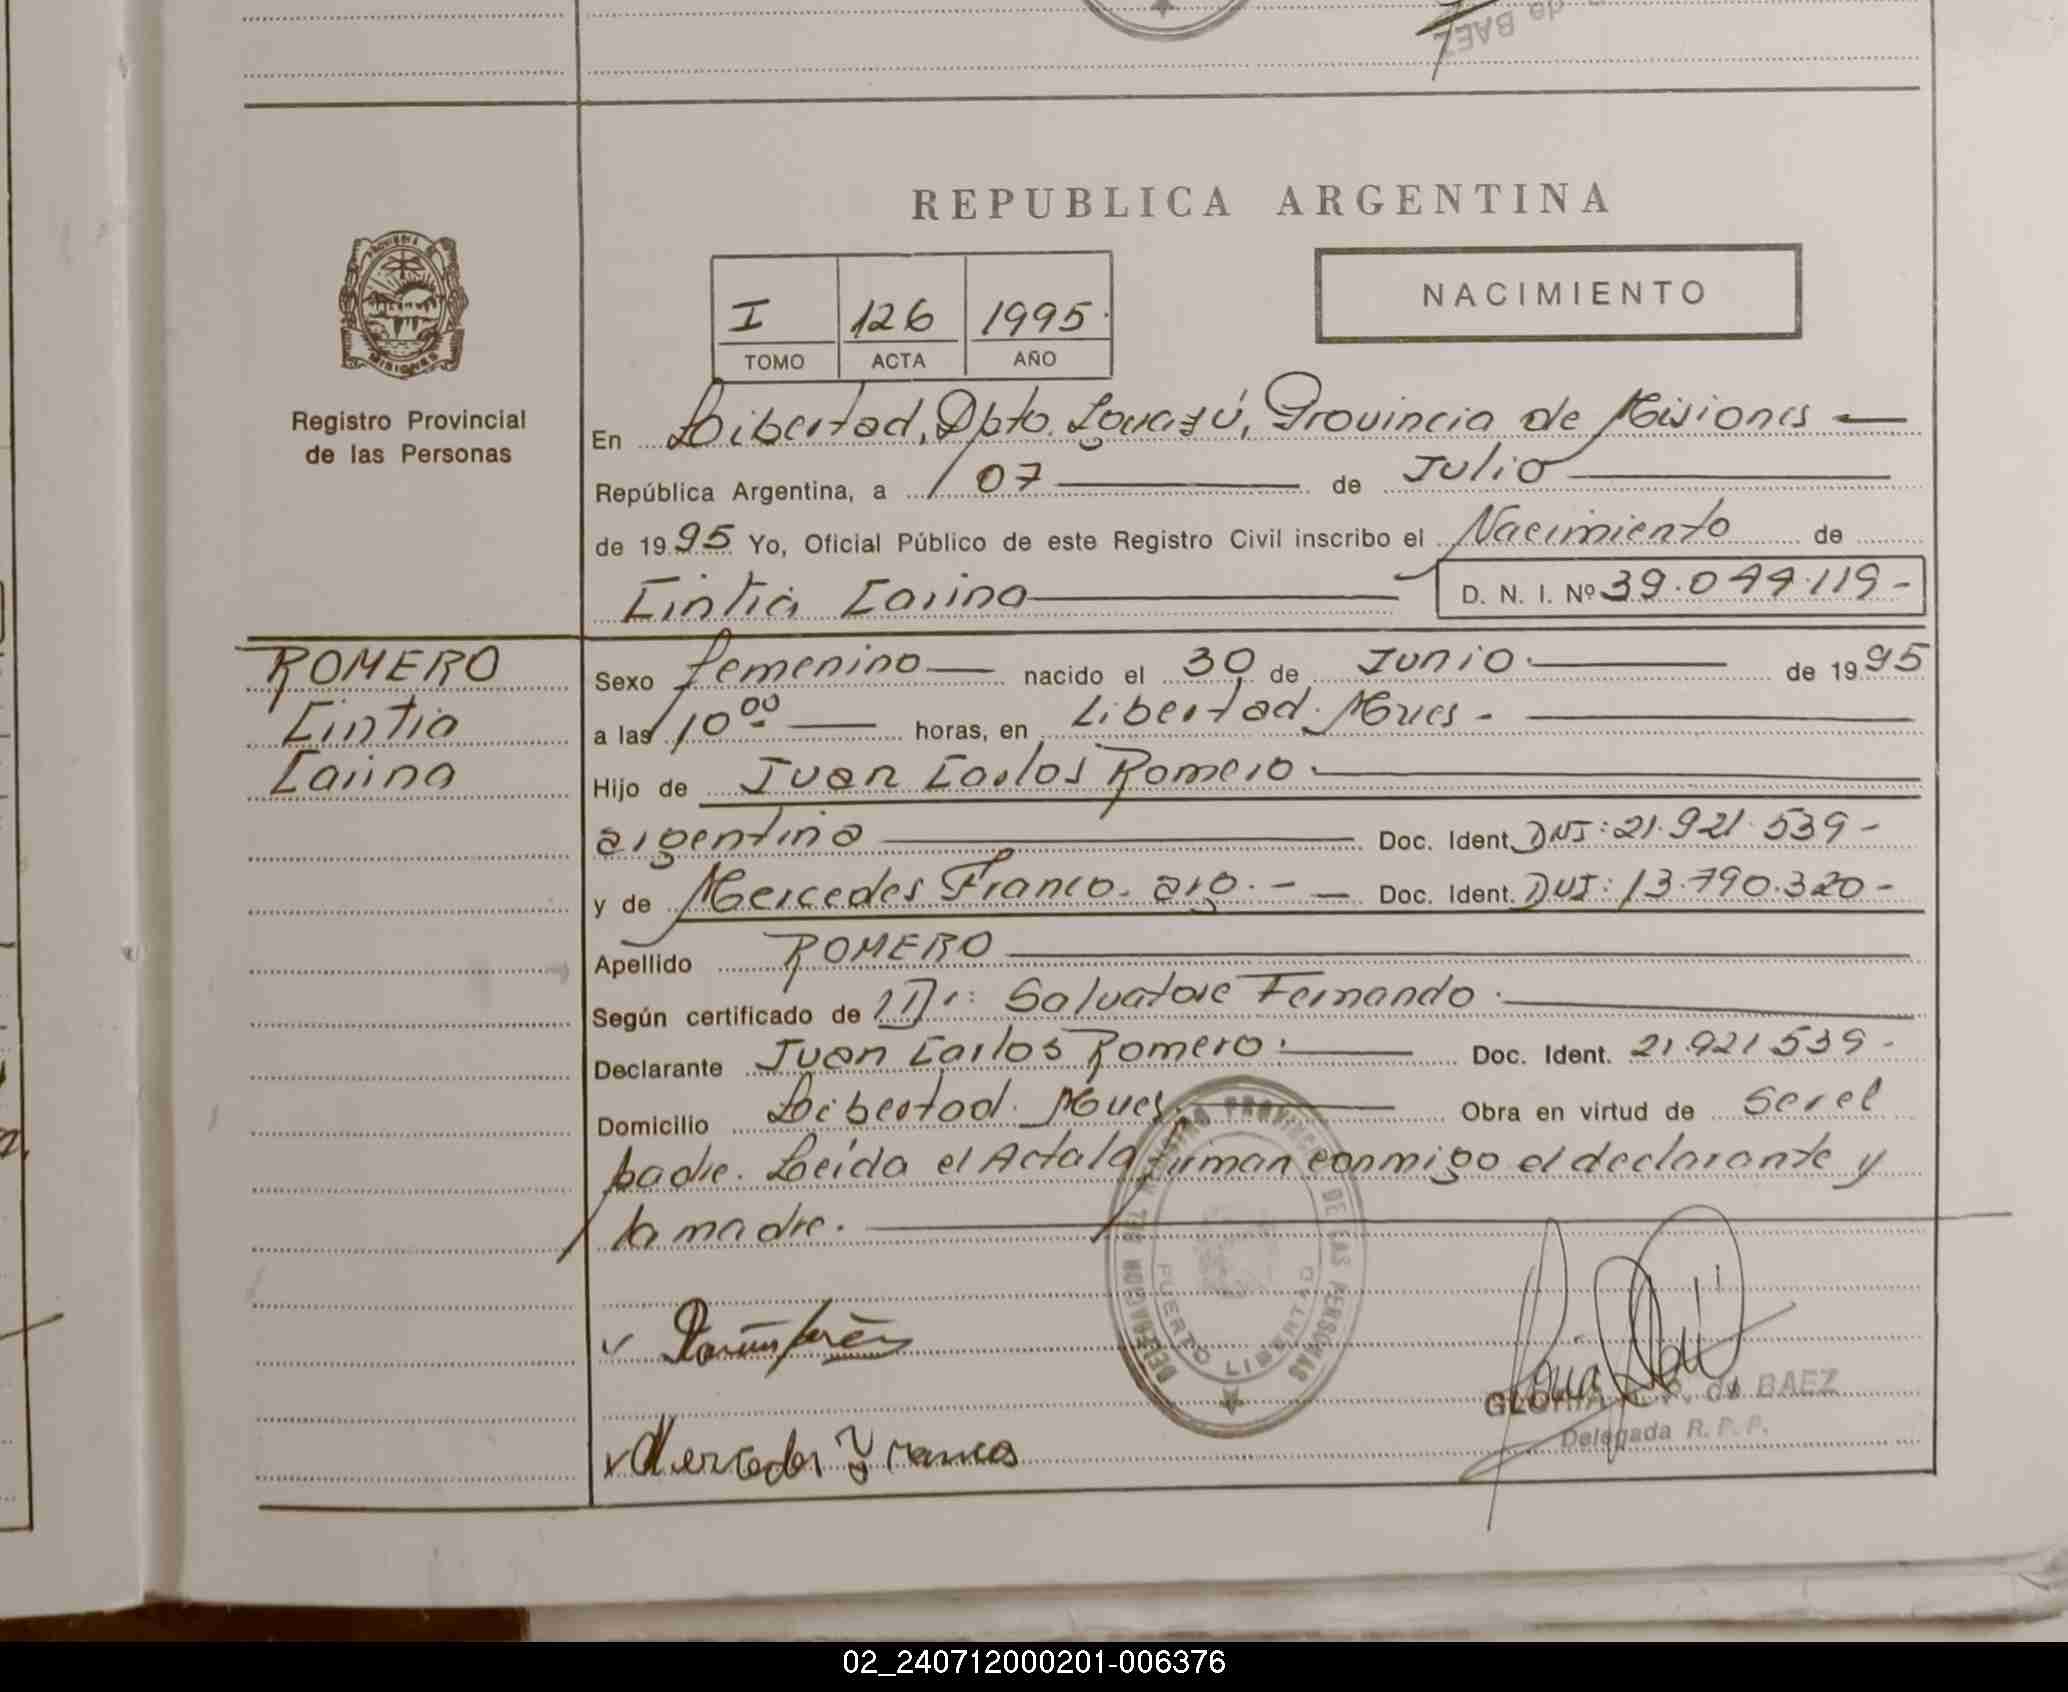 de BAEZ
REPUBLICA ARGENTINA
NACIMIENTO
I 126 1995
TOMO ACTA AÑO
MISIONES
Registro Provincial
de las Personas
En Libertad, Dpto. Iguazú, Provincia de Misiones
República Argentina, a 07 de Julio
de 1995 Yo, Oficial Público de este Registro Civil inscribo el Nacimiento de
Cintia Carina D. N. I. Nº 39.044.119-
ROMERO
Cintia
Carina
Sexo femenino nacido el 30 de Junio de 1995
a las 10 00 horas, en Libertad. Mnes-
Hijo de Juan Carlos Romero
argentina Doc. Ident. DNI: 21.921.539-
y de Mercedes Franco. arg. - Doc. Ident. DNI: 13.790.320-
Apellido ROMERO
Según certificado de Dr: Salvatore Fernando
Declarante Juan Carlos Romero. Doc. Ident. 21.921539-
Domicilio Libertad. Mnes. Obra en virtud de Ser el
padre. Leída el Acta la firman conmigo el declarante y
la madre.
DELEGACION DEL REGISTRO PROVINCIAL DE LAS PERSONAS
PUERTO LIBERTAD
Mercedes Franco
GLORIA de BAEZ
Delegada R. P. P.
02_240712000201-006376